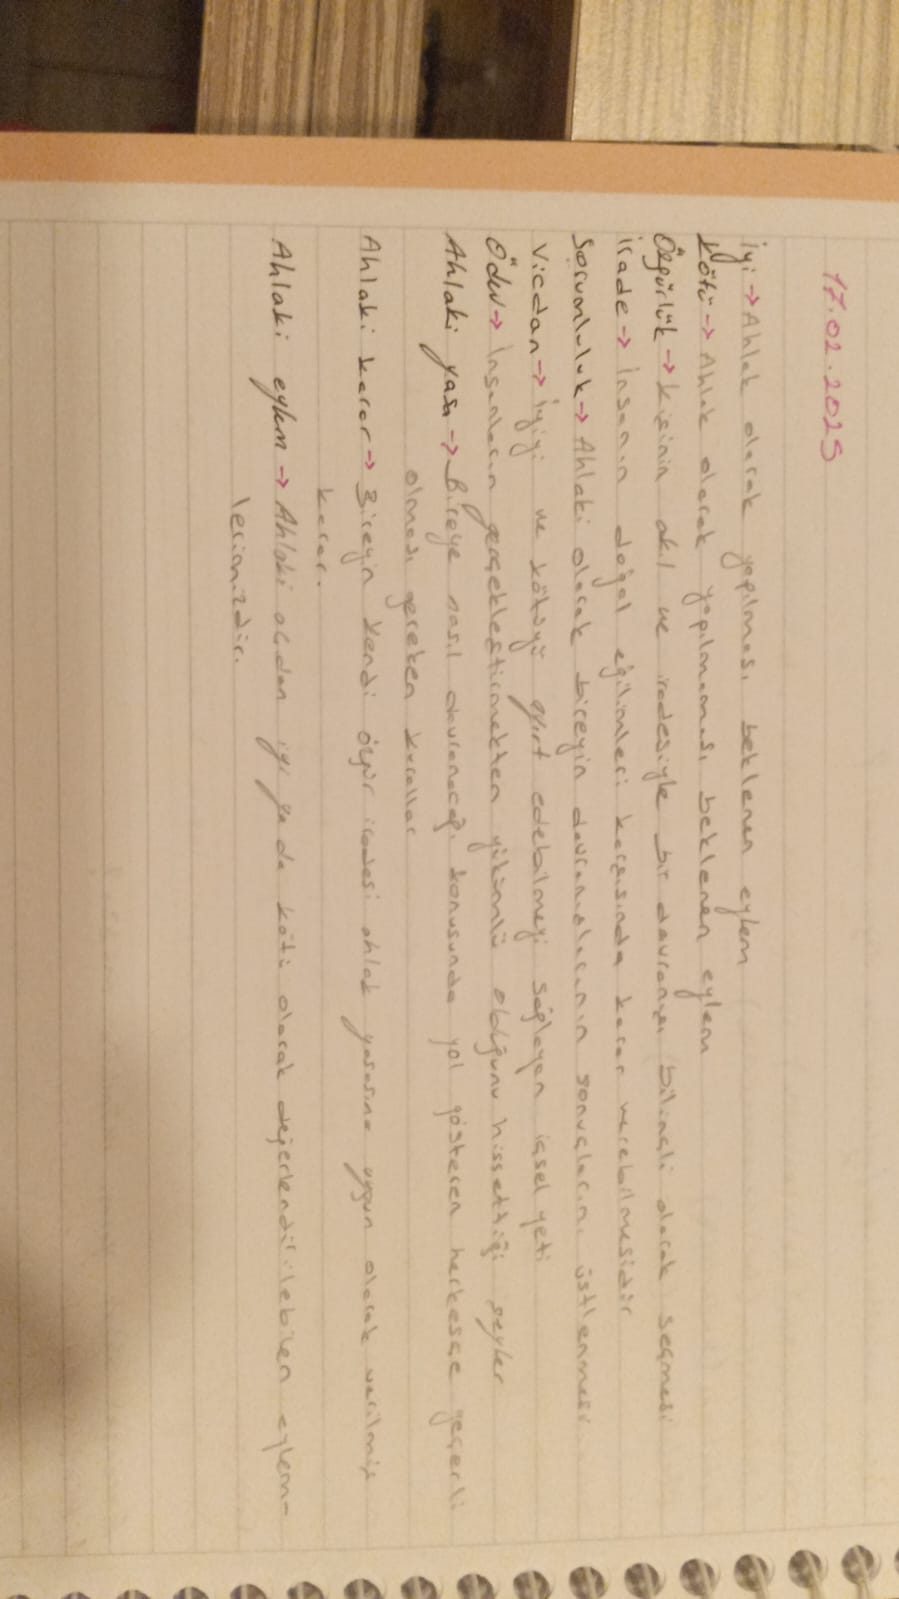 17.02.2025
İyi → Ahlak olarak yapılması beklenen eylem
Kötü → Ahlak olarak yapılmaması beklenen eylem
Özgürlük → Kişinin akıl ve iradesiyle bir davranışı bilinçli olarak seçmesi
İrade → İnsanın doğal eğilimleri karşısında karar verebilmesidir
Sorumluluk → Ahlaki olarak bireyin davranışlarının sonuçlarını üstlenmesi
Vicdan → İyiyi ve kötüyü ayırt edebilmeyi sağlayan içsel yeti
Ödev → İnsanların gerçekleştirmekten yükümlü olduğunu hissettiği şeyler
Ahlaki yasa → Bireye nasıl davranacağı konusunda yol gösteren herkesçe geçerli
olması gereken kurallar
Ahlaki karar → Bireyin kendi özgür iradesi ahlak yasasına uygun olarak verilmiş
karar.
Ahlaki eylem → Ahlaki açıdan iyi ya da kötü olarak değerlendirilebilen eylem-
lerimizdir.